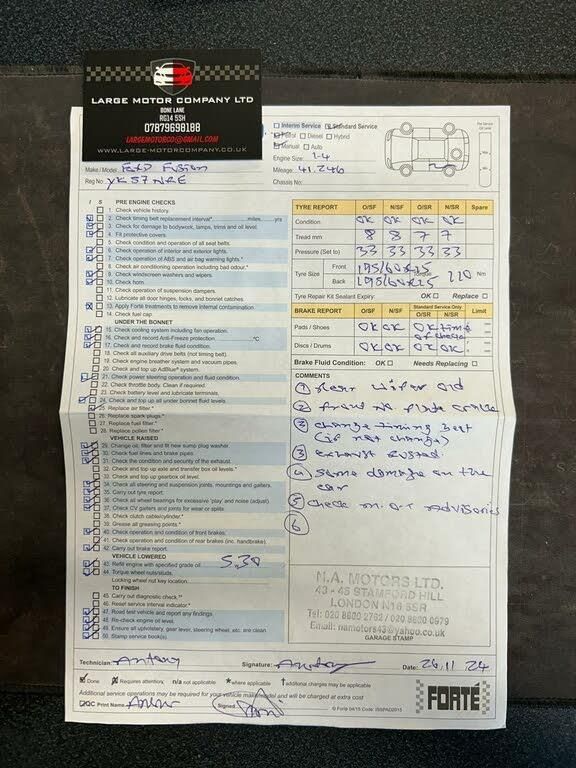 LARGE MOTOR COMPANY LTD
BONE LANE
RG14 5SH
07879698188
LARGEMOTORCO@GMAIL.COM
WWW.LARGE-MOTORCOMPANY.CO.UK
Interim Service Standard Service
Petrol Diesel Hybrid
Manual Auto
Engine Size: 1-4
Make / Model: Ford Fusion
Mileage: 41,246
Reg No. YK57NRE
Chassis No:
I S PRE ENGINE CHECKS
1. Check vehicle history.
2. Check timing belt replacement interval* miles yrs
3. Check for damage to bodywork, lamps, trims and oil level.
4. Fit protective covers.
5. Check condition and operation of all seat belts.
6. Check operation of interior and exterior lights.
7. Check operation of ABS and air bag warning lights.*
8. Check air conditioning operation including bad odour.*
9. Check windscreen washers and wipers.
10. Check horn.
11. Check operation of suspension dampers.
12. Lubricate all door hinges, locks, and bonnet catches.
13. Apply Forté treatments to remove internal contamination.
14. Check fuel cap.
UNDER THE BONNET
15. Check cooling system including fan operation.
16. Check and record Anti-Freeze protection °C
17. Check and record brake fluid condition.
18. Check all auxiliary drive belts (not timing belt).
19. Check engine breather system and vacuum pipes.
20. Check and top up AdBlue® system.
21. Check power steering operation and fluid condition.
22. Check throttle body. Clean if required.
23. Check battery level and lubricate terminals.
24. Check and top up all under bonnet fluid levels.
25. Replace air filter.*
26. Replace spark plugs.*
27. Replace fuel filter.*
28. Replace pollen filter.*
VEHICLE RAISED
29. Change oil, filter and fit new sump plug washer.
30. Check fuel lines and brake pipes.
31. Check the condition and security of the exhaust.
32. Check and top up axle and transfer box oil levels.*
33. Check and top up gearbox oil level.
34. Check all steering and suspension joints, mountings and gaiters.
35. Carry out tyre report.
36. Check all wheel bearings for excessive 'play' and noise (adjust).
37. Check CV gaiters and joints for wear or splits
38. Check clutch cable/cylinder.*
39. Grease all greasing points.*
40. Check operation and condition of front brakes.
41. Check operation and condition of rear brakes (inc. handbrake).
42. Carry out brake report.
VEHICLE LOWERED
43. Refill engine with specified grade oil 5.30
44. Torque wheel nuts/studs.
Locking wheel nut key location:
TO FINISH
45. Carry out diagnostic check.
46. Reset service interval indicator.*
47. Road test vehicle and report any findings.
48. Re-check engine oil level.
49. Ensure all upholstery, gear lever, steering wheel, etc. are clean
50. Stamp service book(s)
TYRE REPORT O/SF N/SF O/SR N/SR Spare
Condition OK OK OK OK
Tread mm 8 8 7 7
Pressure (Set to) 33 33 33 33
Tyre Size Front 195/60R15 Torque 110 Nm
Rear 195/60R15
Tyre Repair Kit Sealant Expiry: OK Replace
BRAKE REPORT O/SF N/SF Standard Service Only O/SR N/SR Limit
Pads / Shoes OK OK OK time of check
Discs / Drums OK OK OK OK
Brake Fluid Condition: OK Needs Replacing
COMMENTS
1 Rear wiper old
2 front NS
2 change timing belt
(if not change)
3 exhaust rusted
4 some damage on the
car
5 check m.o.t advisories
6
N.A. MOTORS LTD.
43 - 45 STAMFORD HILL
LONDON N16 5SR
Tel: 020 8800 2762 / 020 8800 0979
Email: namotors43@yahoo.co.uk
GARAGE STAMP
Technician: Antony Signature: Antony Date: 26.11 24
Done Requires attention n/a not applicable *where applicable †additional charges may be applicable
Additional service operations may be required for your vehicle make/model and will be charged at extra cost
QC Print Name Signed
© Forté 04/15 Code: ISSPAD2015
FORTÉ